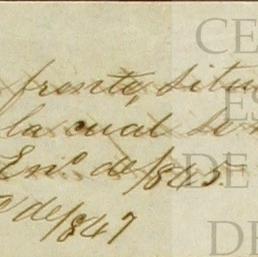 frente, situ
la cual se
En.º de 1845.
de 1847
CE
ES
DE
DE